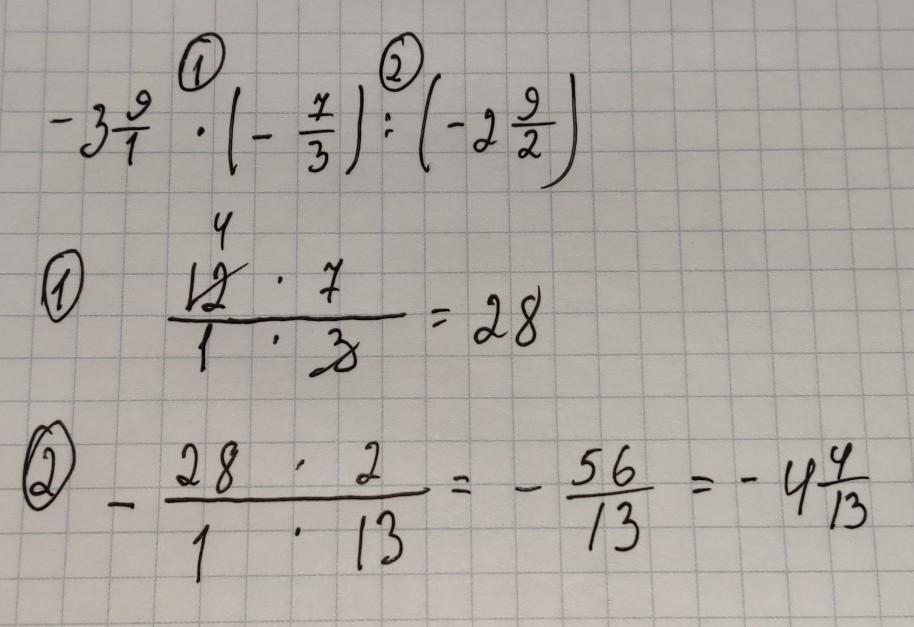 ① ②
-3 9/1 · (- 7/3) : (-2 9/2)
4
① 12 · 7 / 1 · 3 = 28
② - 28 · 2 / 1 · 13 = - 56/13 = - 4 4/13